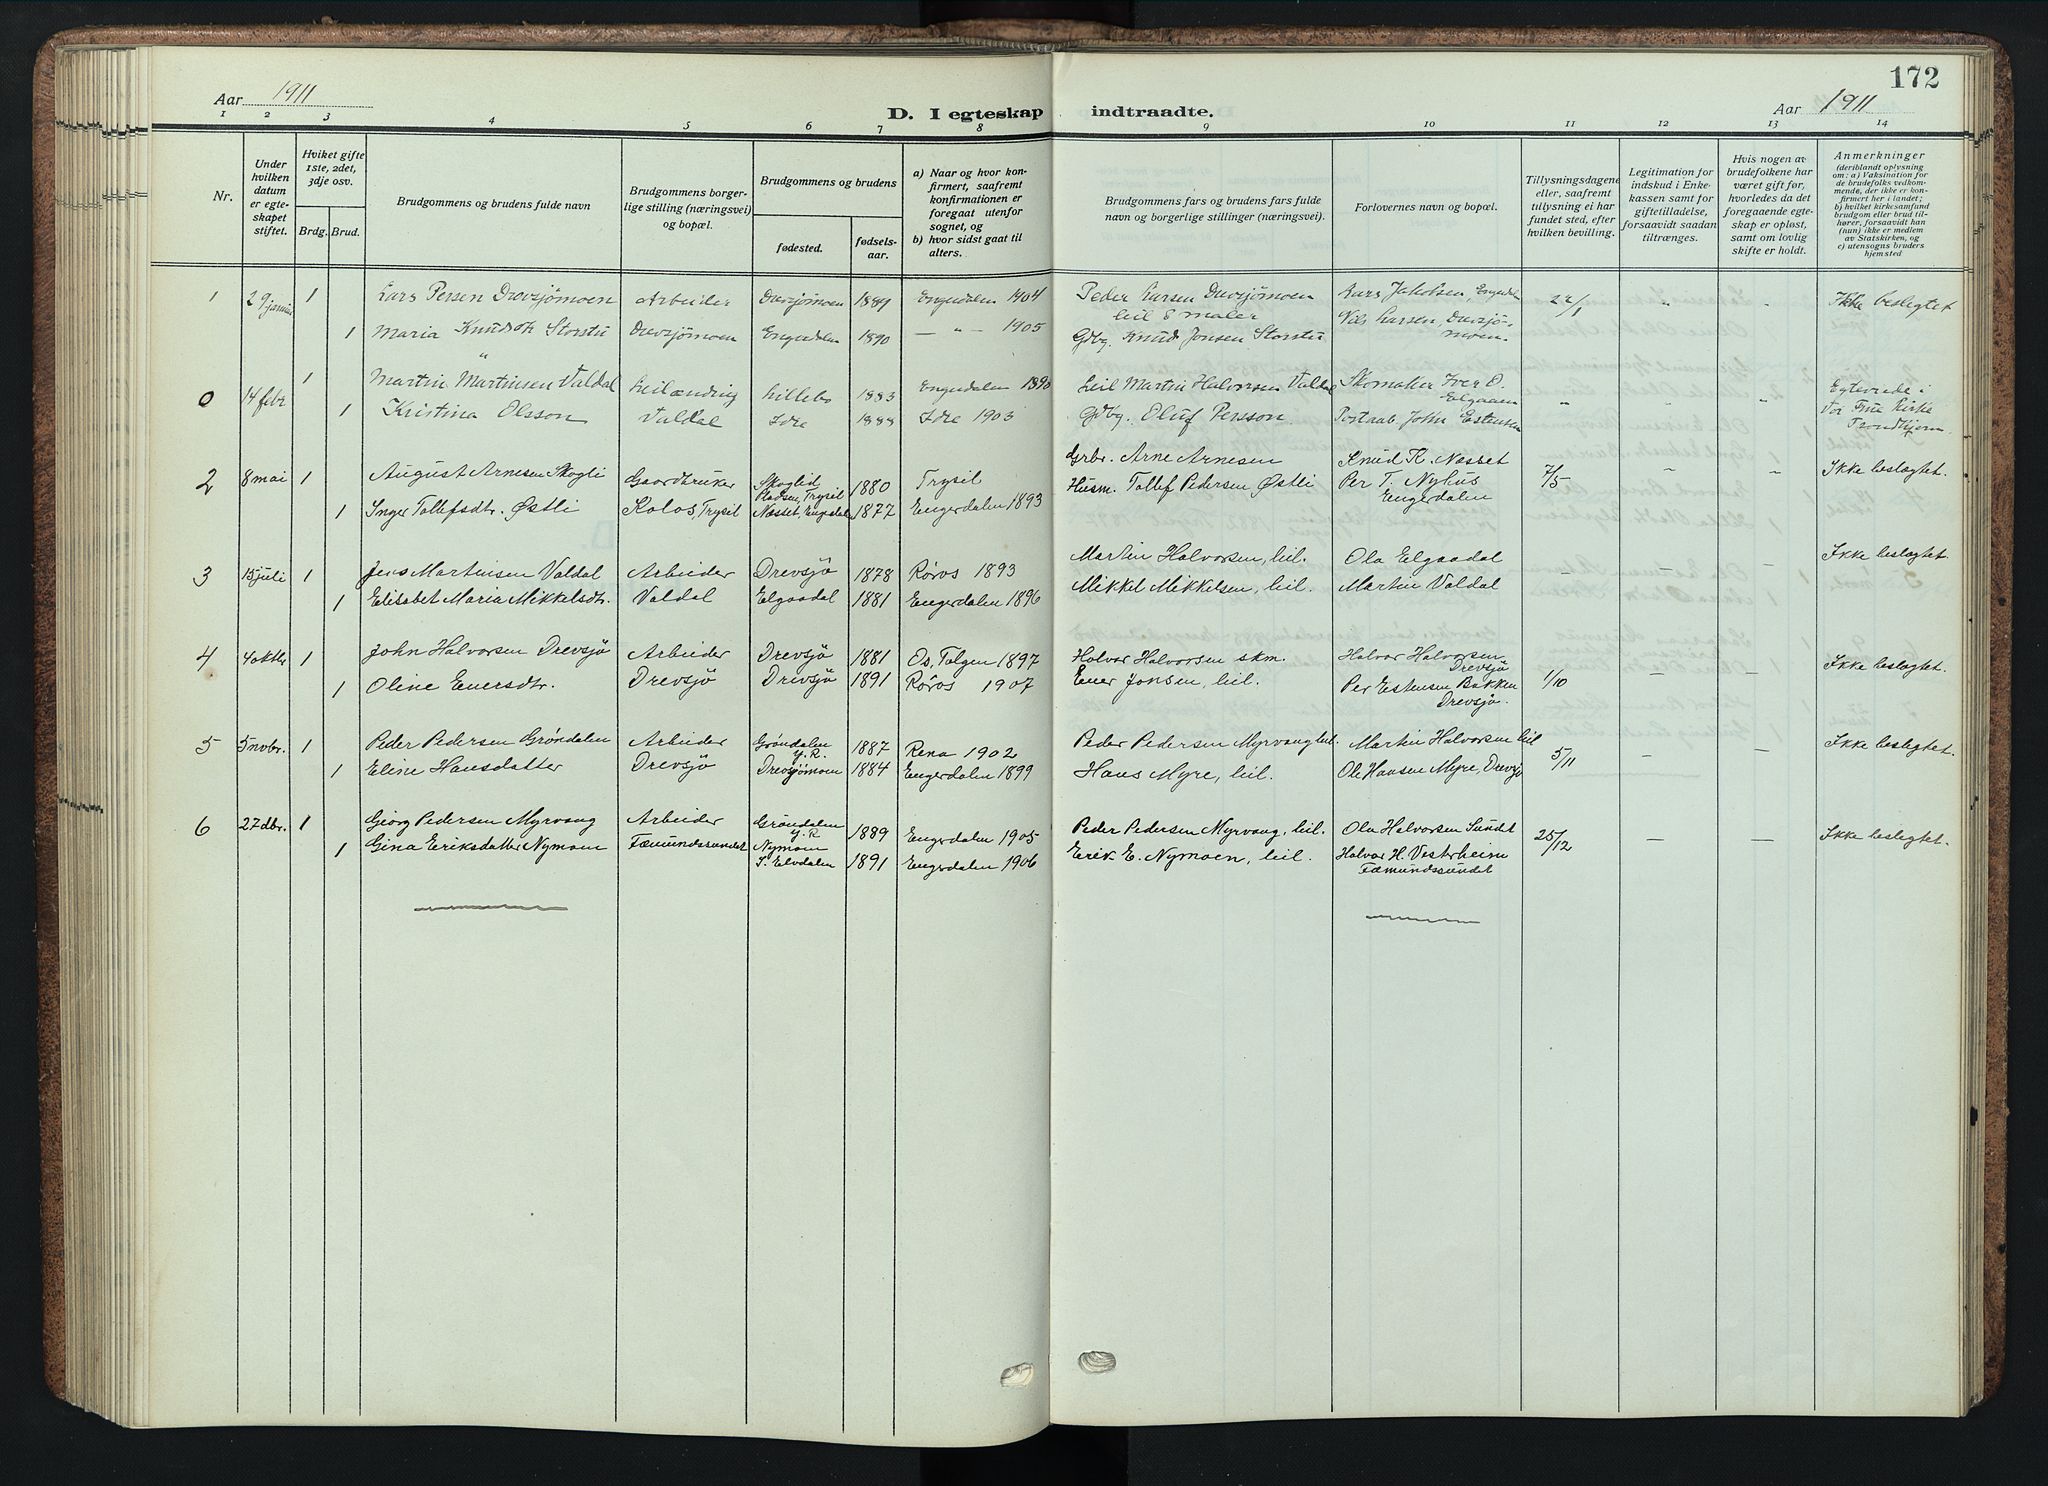 172
Aar 1911
D. I egteskap indtraadte.
Aar 1911
1 2 3 4 5 6 7 8 9 10 11 12 13 14
Nr.
Under hvilken datum er egteskapet stiftet.
Hviket gifte 1ste, 2det, 3dje osv.
Brdg. Brud.
Brudgommens og brudens fulde navn
Brudgommens borgerlige stilling (næringsvei) og bopæl.
Brudgommens og brudens
fødested.
fødselsaar.
a) Naar og hvor konfirmert, saafremt konfirmationen er foregaat utenfor sognet, og
b) hvor sidst gaat til alters.
Brudgommens fars og brudens fars fulde navn og borgerlige stillinger (næringsvei).
Forlovernes navn og bopæl.
Tillysningsdagene eller, saafremt tillysning ei har fundet sted, efter hvilken bevilling.
Legitimation for indskud i Enkekassen samt for giftetilladelse, forsaavidt saadan tiltrænges.
Hvis nogen av brudefolkene har været gift før, hvorledes da det foregaaende egteskap er opløst, samt om lovlig skifte er holdt.
Anmerkninger
(deriblandt oplysning om: a) Vaksination for de brudefolks vedkommende, der ikke er konfirmert her i landet; b) hvilket kirkesamfund brudgom eller brud tilhører, forsaavidt han (hun) ikke er medlem av Statskirken, og c) utensogns bruders hjemsted
1 29 januar 1 Lars Persen Drevsjømoen Arbeider Drevsjømoen 1889 Engerdalen 1904 Peder Larsen Drevsjømoen leil & maler Lars Jakobsen, Engerdalen 22/1 " " Ikke beslegtet
1 Maria Knudsdt Storstu Drevsjømoen Engerdalen 1890 — " — 1905 Gdbg. Knud Jonsen Storstu Nils Larsen, Drevsjømoen
0 14 febr 1 Martin Martinsen Valdal Leilænding Lillebo 1883 Engerdalen 1890 Leil Martin Halvorsen Valdal Skomaker Iver O. Elgaaen " " " Egteviede i Vor Frue Kirke Trondhjem.
1 Kristina Olsson Valdal Idre 1888 Idre 1903 Gdbg. Oluf Persson Postaab. John Estensen
2 8 mai 1 August Arnesen Skogli Gaardbruker Skoglid Pladsen, Trysil 1880 Trysil Grbr. Arne Arnesen Knud K. Næsset 7/5 " " Ikke beslegtet.
1 Inger Tollefsdtr. Østli Kolos, Trysil Næsset, Engerdalen 1877 Engerdalen 1893 Husm. Tollef Pedersen Østli Per T. Nyhus Engerdalen
3 15 juli 1 Jens Martinsen Valdal Arbeider Drevsjø 1878 Røros 1893 Martin Halvorsen, leil. Ola Elgaadal — — — Ikke beslegtet.
1 Elisabet Maria Mikkelsdtr. Valdal Elgaadal 1881 Engerdalen 1896 Mikkel Mikkelsen, leil. Martin Valdal
4 4 oktbr 1 John Halvorsen Drevsjø Arbeider Drevsjø 1881 Os, Tolgen 1897 Halvor Halvorsen skm. Halvor Halvorsen Drevsjø 1/10 — — Ikke beslegtet.
1 Oline Enersdtr. Drevsjø Drevsjø 1891 Røros 1907 Ener Jonsen, leil. Per Estensen Bakken Drevsjø.
5 5 novbr. 1 Peder Pedersen Grøndalen Arbeider Grøndalen Y. R. 1887 Rena 1902 Peder Pedersen Myrvang leil. Martin Halvorsen leil 5/11 — — Ikke beslegtet.
1 Eline Hansdatter Drevsjø Drevsjømoen 1884 Engerdalen 1899 Hans Myre, leil. Ole Hansen Myre, Drevsjø
6 27 dbr. 1 Georg Pedersen Myrvang Arbeider Grøndalen Y. R 1889 Engerdalen 1905 Peder Pedersen Myrvang, leil. Ola Halvorsen Sundet 25/12 — — Ikke beslegtet.
1 Gina Eriksdatter Nymoen Fæmundssundet Nymoen S. Elvdalen 1891 Engerdalen 1906 Erik E. Nymoen, leil. Halvor H. Vestrheim Fæmundssundet